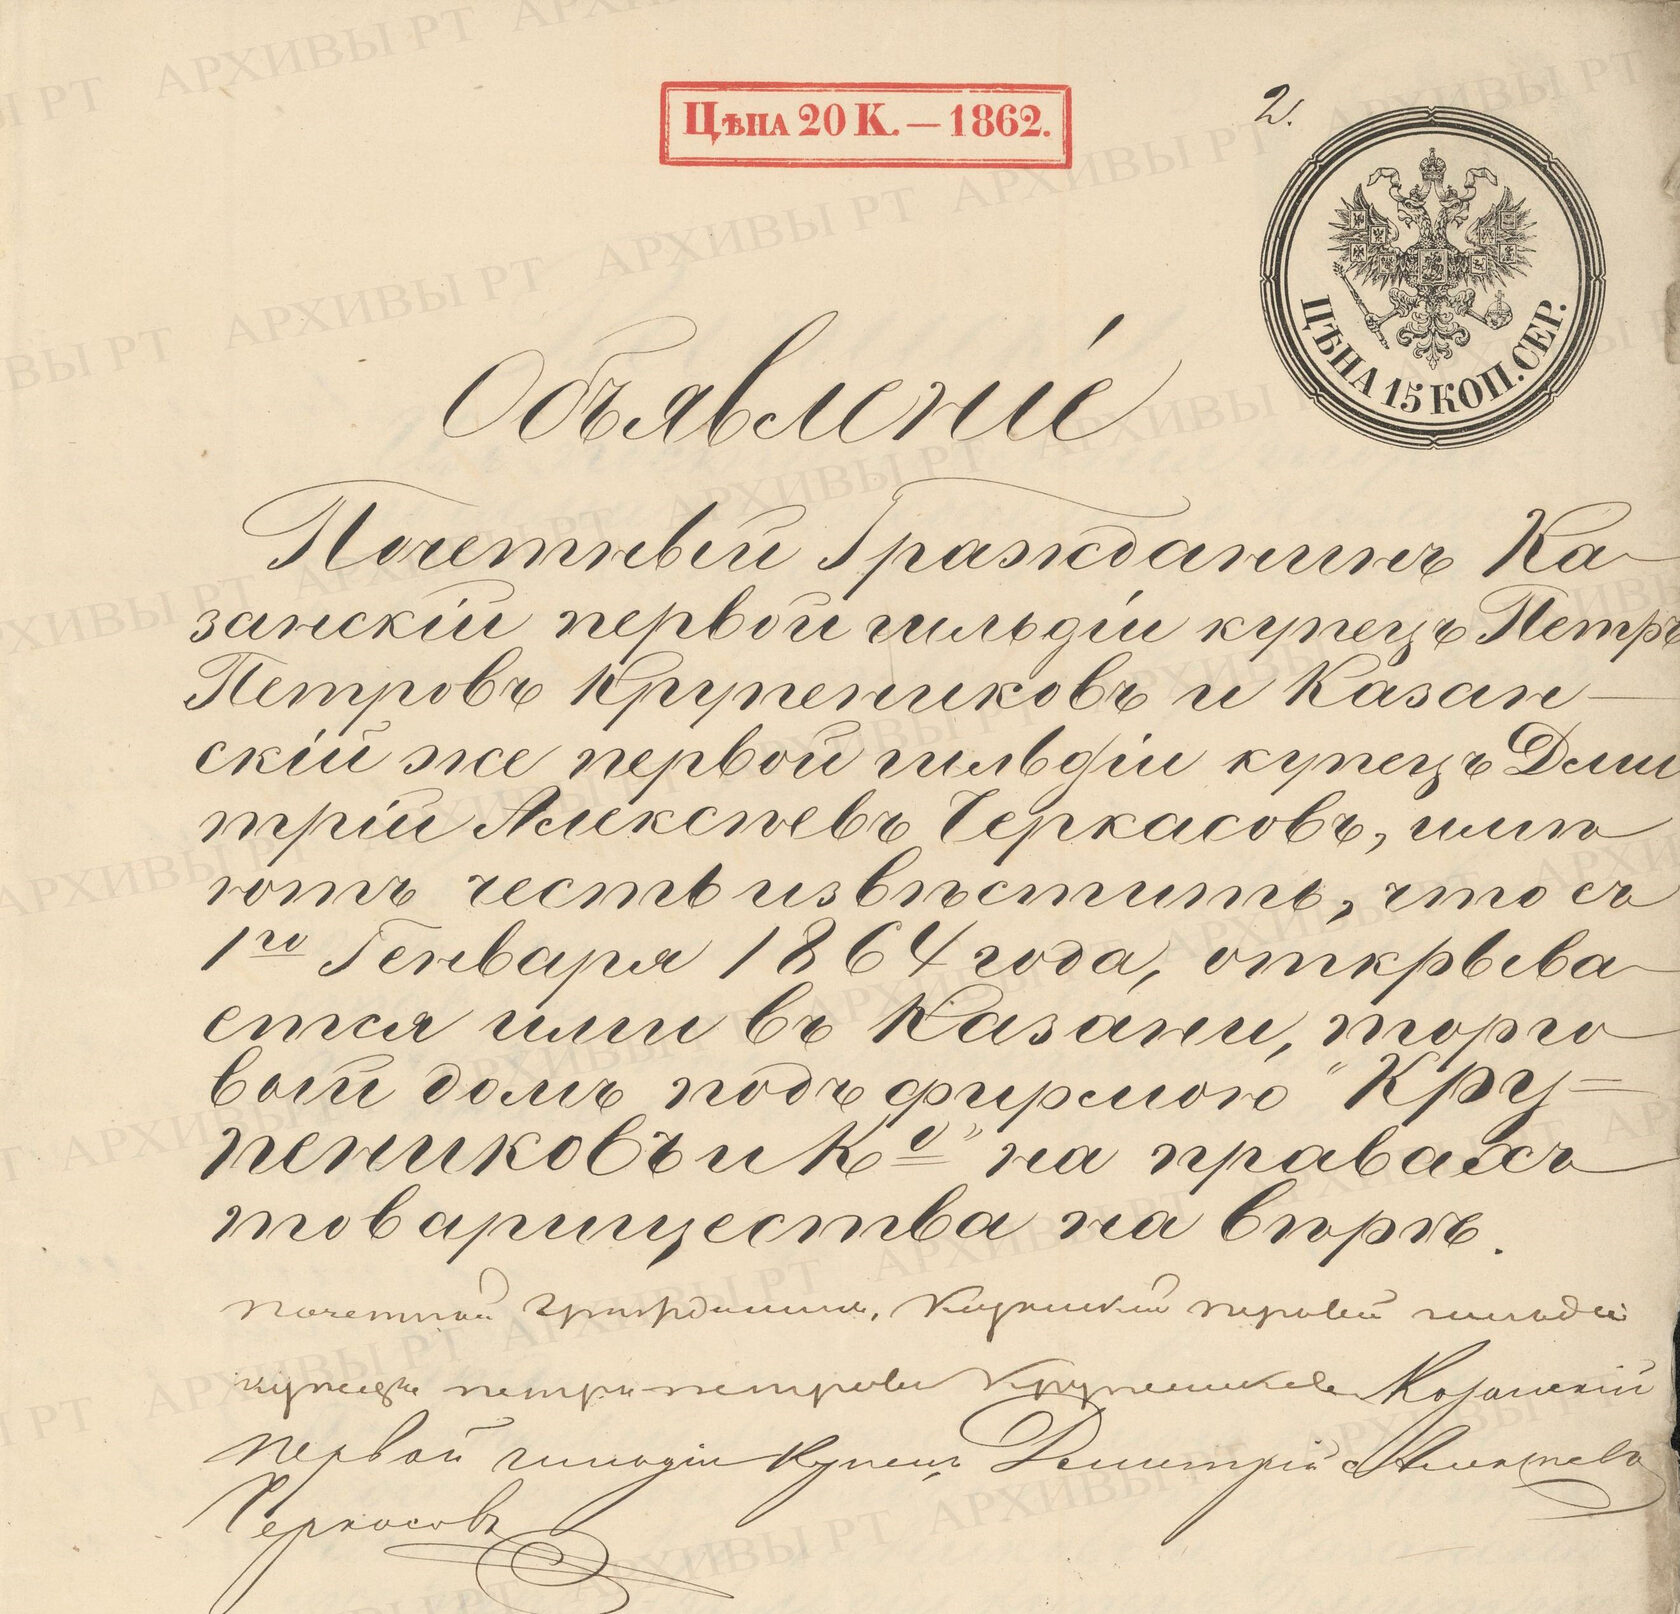 Цѣна 20 К. — 1862.
2.
ЦѢНА 15 КОП. СЕР.
Объявленіе
Почетный Гражданинъ Ка-
занскій первой гильдіи купецъ Петръ
Петровъ Крупениковъ и Казан-
скій же первой гильдіи купецъ Дми
трій Алексѣевъ Черкасовъ, имѣ
ютъ честь извѣстить, что съ
1го Генваря 1864 года, открыва-
ется ими въ Казани, торго
вой домъ подъ фирмою "Кру=
пениковъ и Ко" на правахъ
товарищества на вѣрѣ.
почетной гражданинъ, Казанский первой гильдіи
купецъ петръ петровъ Крупениковъ Казанскій
первой гильдіи Купецъ Дмитрій Алексѣевъ
Черкасовъ
АРХИВЫ РТ